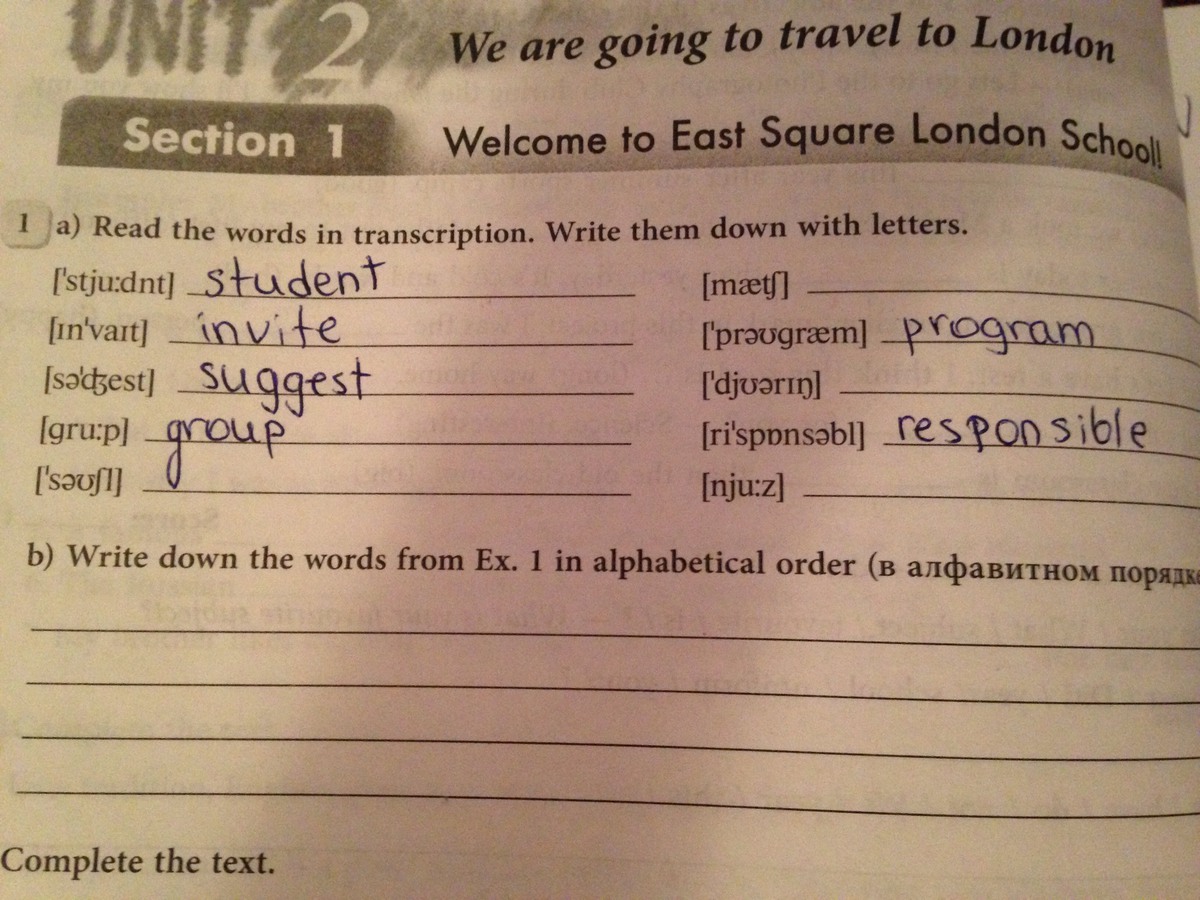 UNIT 2 We are going to travel to London
Section 1 Welcome to East Square London School!
1 a) Read the words in transcription. Write them down with letters.
['stju:dnt] student
[ɪn'vaɪt] invite
[sə'ʤest] suggest
[gru:p] group
['səʊʃl]
[mæʧ]
['prəʊgræm] program
['djʊərɪŋ]
[ri'spɒnsəbl] responsible
[nju:z]
b) Write down the words from Ex. 1 in alphabetical order (в алфавитном порядке
Complete the text.